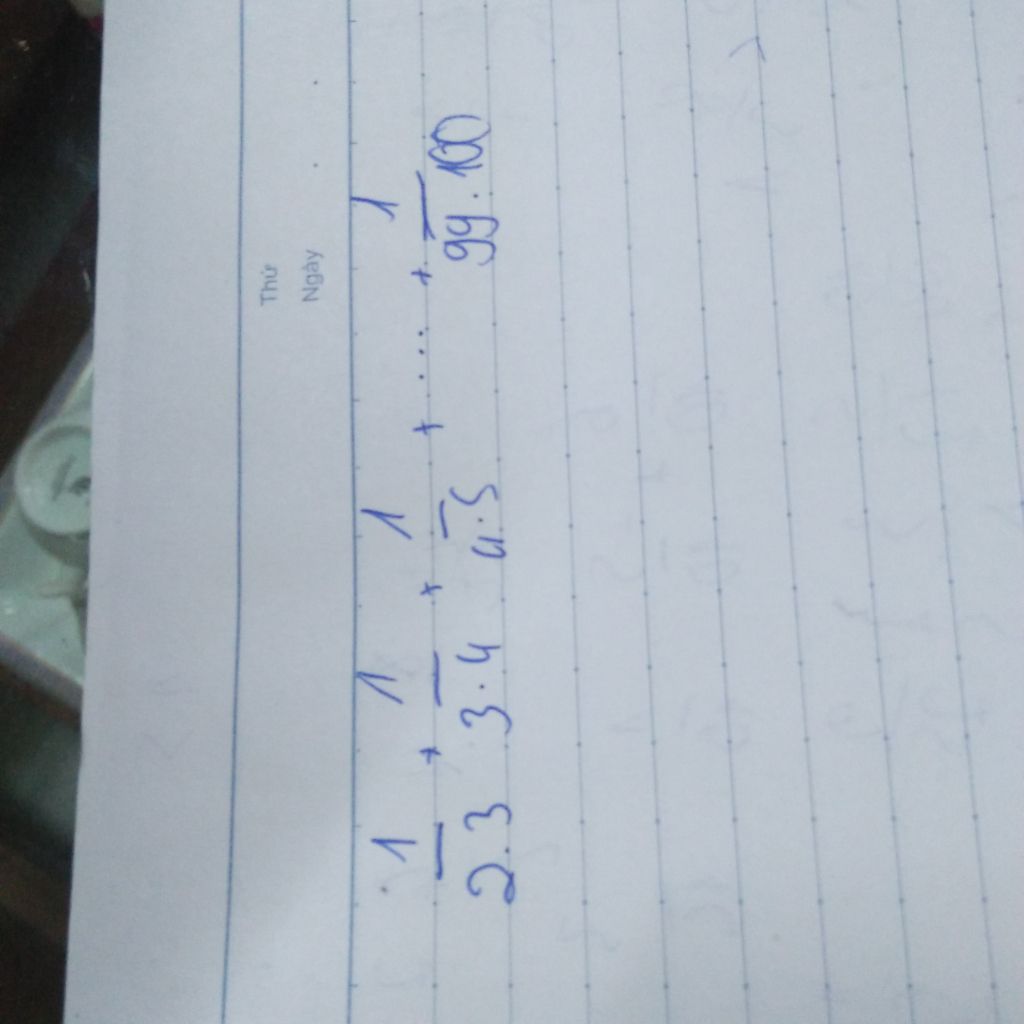 Thứ
Ngày
1/2.3 + 1/3.4 + 1/4.5 + .... + 1/99.100